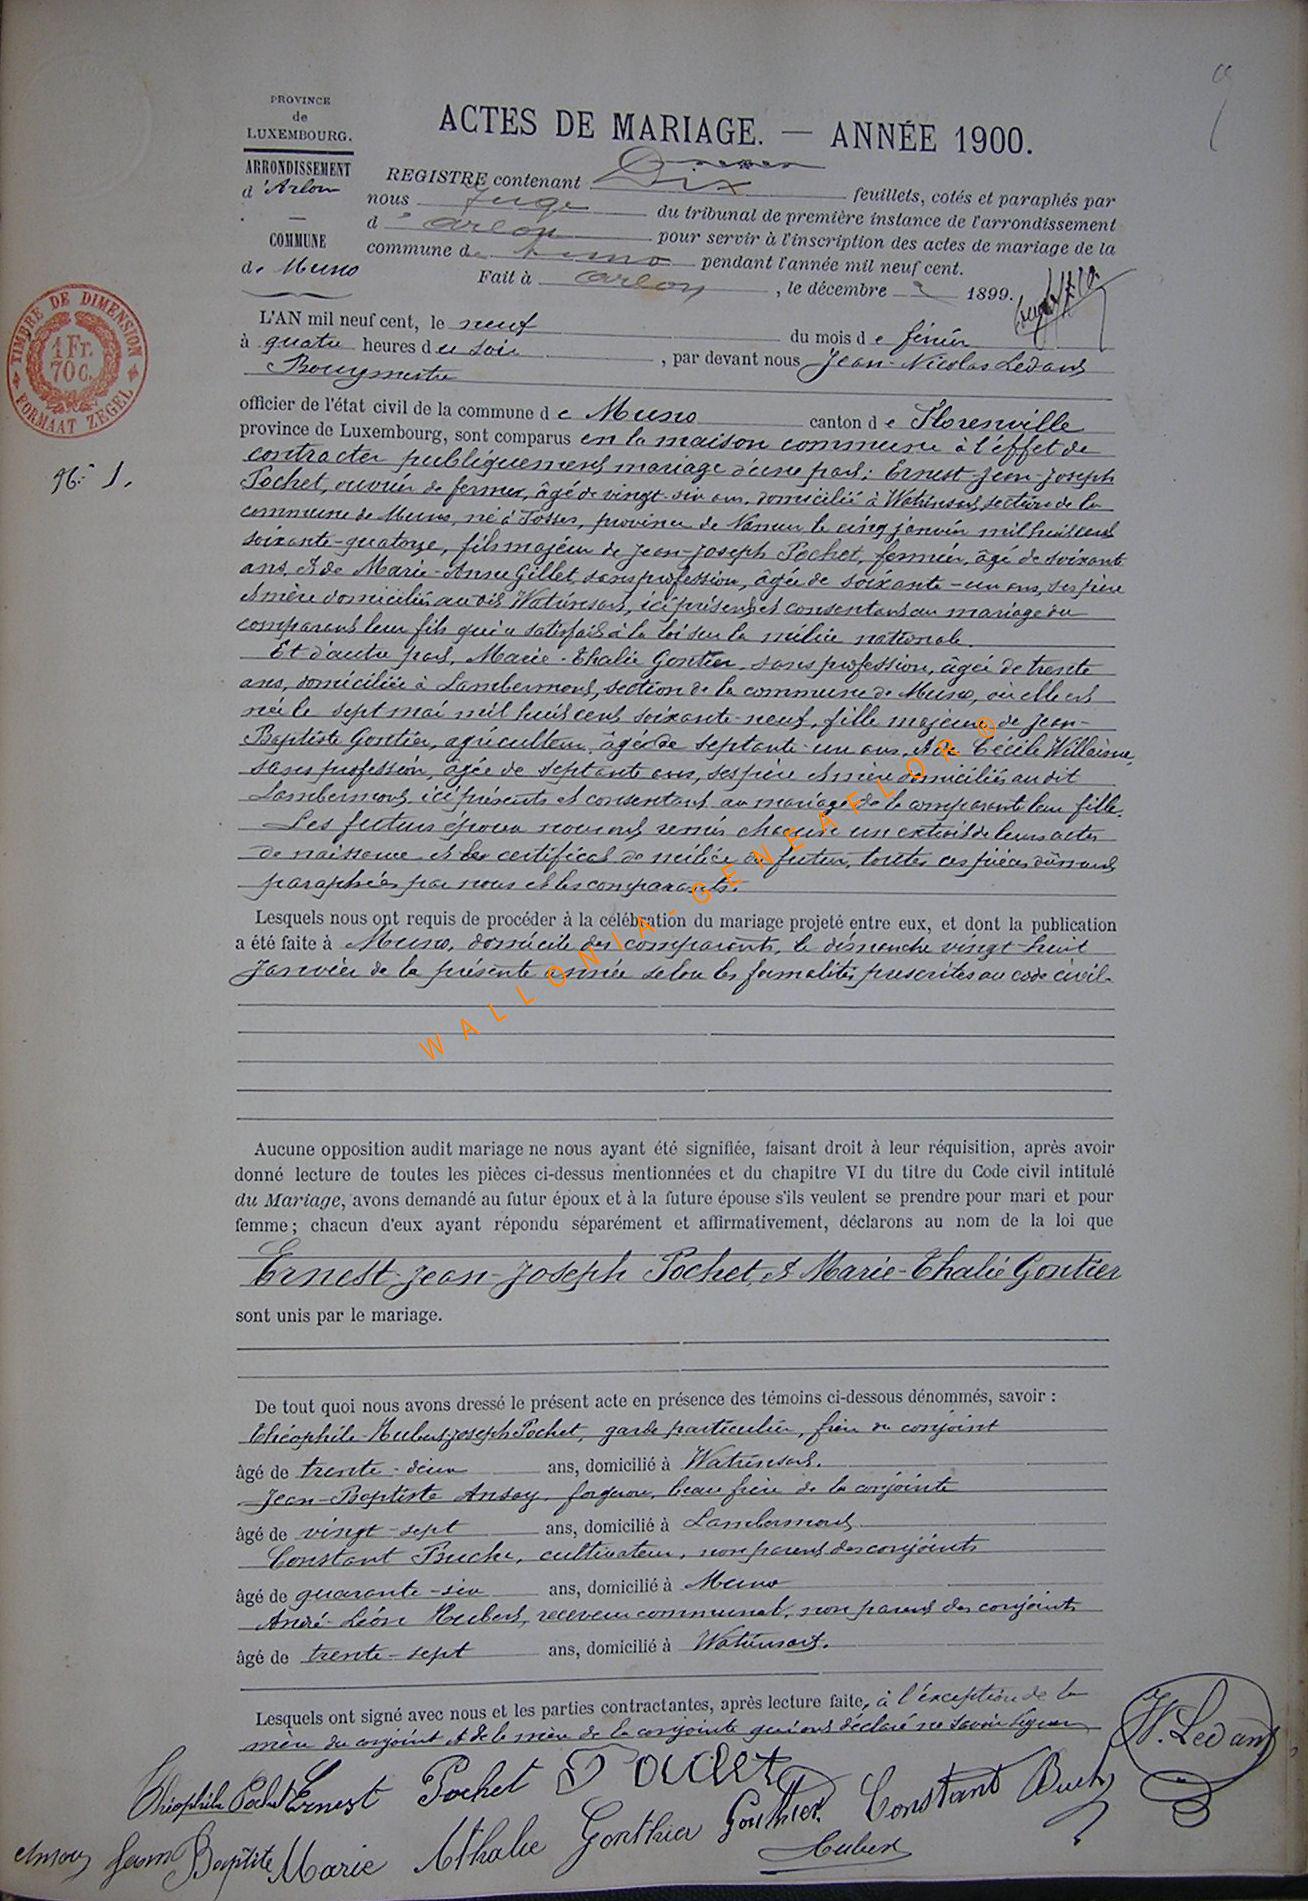 PROVINCE
de
LUXEMBOURG.
ARRONDISSEMENT
d'Arlon
COMMUNE
de Muno
ACTES DE MARIAGE. — ANNÉE 1900.
REGISTRE contenant Dix feuillets, cotés et paraphés par
nous Juge du tribunal de première instance de l'arrondissement
d'Arlon pour servir à l'inscription des actes de mariage de la
commune de Muno pendant l'année mil neuf cent.
Fait à Arlon, le décembre 2 1899.
TIMBRE DE DIMENSION
1 Fr.
70 C.
FORMAAT ZEGEL
No 1.
L'AN mil neuf cent, le neuf du mois de février
à quatre heures du soir, par devant nous Jean-Nicolas Ledant
Bourgmestre
officier de l'état civil de la commune de Muno canton de Florenville
province de Luxembourg, sont comparus en la maison commune à l'effet de
contracter publiquement mariage d'une part: Ernest-Jean-Joseph
Pochet, ouvrier de ferme, âgé de vingt-six ans, domicilié à Watrinsart, section de la
commune de Muno, né à Tosser, province de Namur le cinq janvier mil huit cent
soixante-quatorze, fils majeur de Jean-Joseph Pochet, fermier, âgé de soixante
ans, et de Marie-Anne Gillet, sans profession, âgée de soixante-un ans, ses père
et mère domiciliés au dit Watrinsart, ici présents et consentant au mariage du
comparant leur fils qui a satisfait à la loi sur la milice nationale.
Et d'autre part, Marie-Thalie Gontier, sans profession, âgée de trente
ans, domiciliée à Lambermont, section de la commune de Muno, où elle est
née le sept mai mil huit cent soixante-neuf, fille majeure de Jean-
Baptiste Gontier, agriculteur, âgé de septante-un ans, et de Cécile Willaime,
sans profession, âgée de septante ans, ses père et mère domiciliés au dit
Lambermont, ici présents et consentant au mariage de la comparante leur fille.
Les futurs époux nous ont remis chacun un extrait de leurs actes
de naissance et le certificat de milice du futur, toutes ces pièces dûment
paraphées par nous et les comparants.
Lesquels nous ont requis de procéder à la célébration du mariage projeté entre eux, et dont la publication
a été faite à Muno, domicile des comparants, le dimanche vingt-huit
Janvier de la présente année selon les formalités prescrites au code civil.
WALLONIA-GENEAFLOR ®
Aucune opposition audit mariage ne nous ayant été signifiée, faisant droit à leur réquisition, après avoir
donné lecture de toutes les pièces ci-dessus mentionnées et du chapitre VI du titre du Code civil intitulé
du Mariage, avons demandé au futur époux et à la future épouse s'ils veulent se prendre pour mari et pour
femme; chacun d'eux ayant répondu séparément et affirmativement, déclarons au nom de la loi que
Ernest-Jean-Joseph Pochet, et Marie-Thalie Gontier
sont unis par le mariage.
De tout quoi nous avons dressé le présent acte en présence des témoins ci-dessous dénommés, savoir :
Théophile-Hubert-Joseph Pochet, garde particulier, frère du conjoint
âgé de trente-deux ans, domicilié à Watrinsart.
Jean-Baptiste Ansay, forgeron, beau frère de la conjointe
âgé de vingt-sept ans, domicilié à Lambermont
Constant Buche, cultivateur, non parent des conjoints
âgé de quarante-six ans, domicilié à Muno
André-Léon Hubert, receveur communal, non parent des conjoints
âgé de trente-sept ans, domicilié à Watrinsart.
Lesquels ont signé avec nous et les parties contractantes, après lecture faite, à l'exception de la
mère du conjoint et de la mère de la conjointe qui ont déclaré ne savoir signer
Théophile Pochet Ernest Pochet J Pochet Constant Buche N. Ledant
Ansay Jean Baptiste Marie Athalie Gonthier Gonthier
Hubert